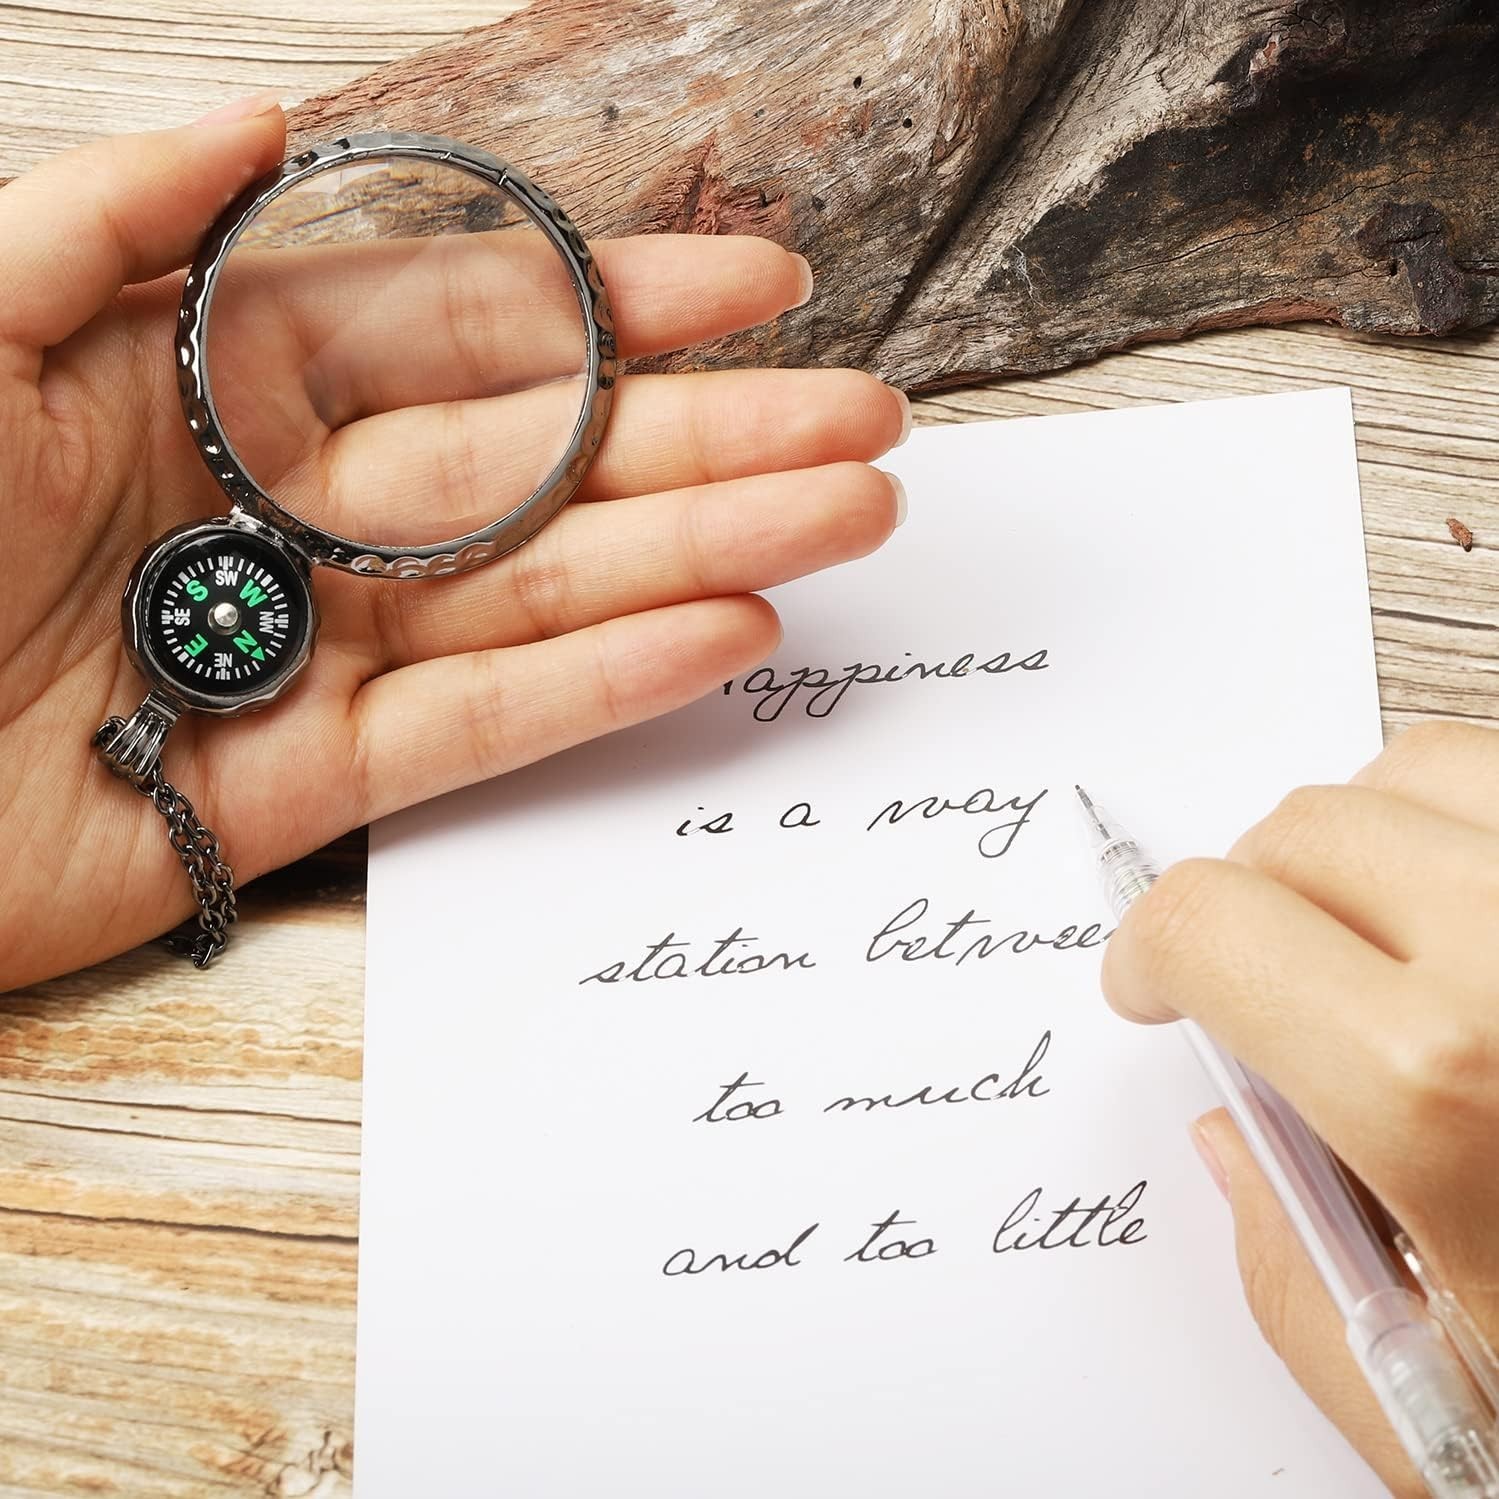 SW
S W
SE NW
E N
NE
appiness
is a way
station betwee
too much
and too little